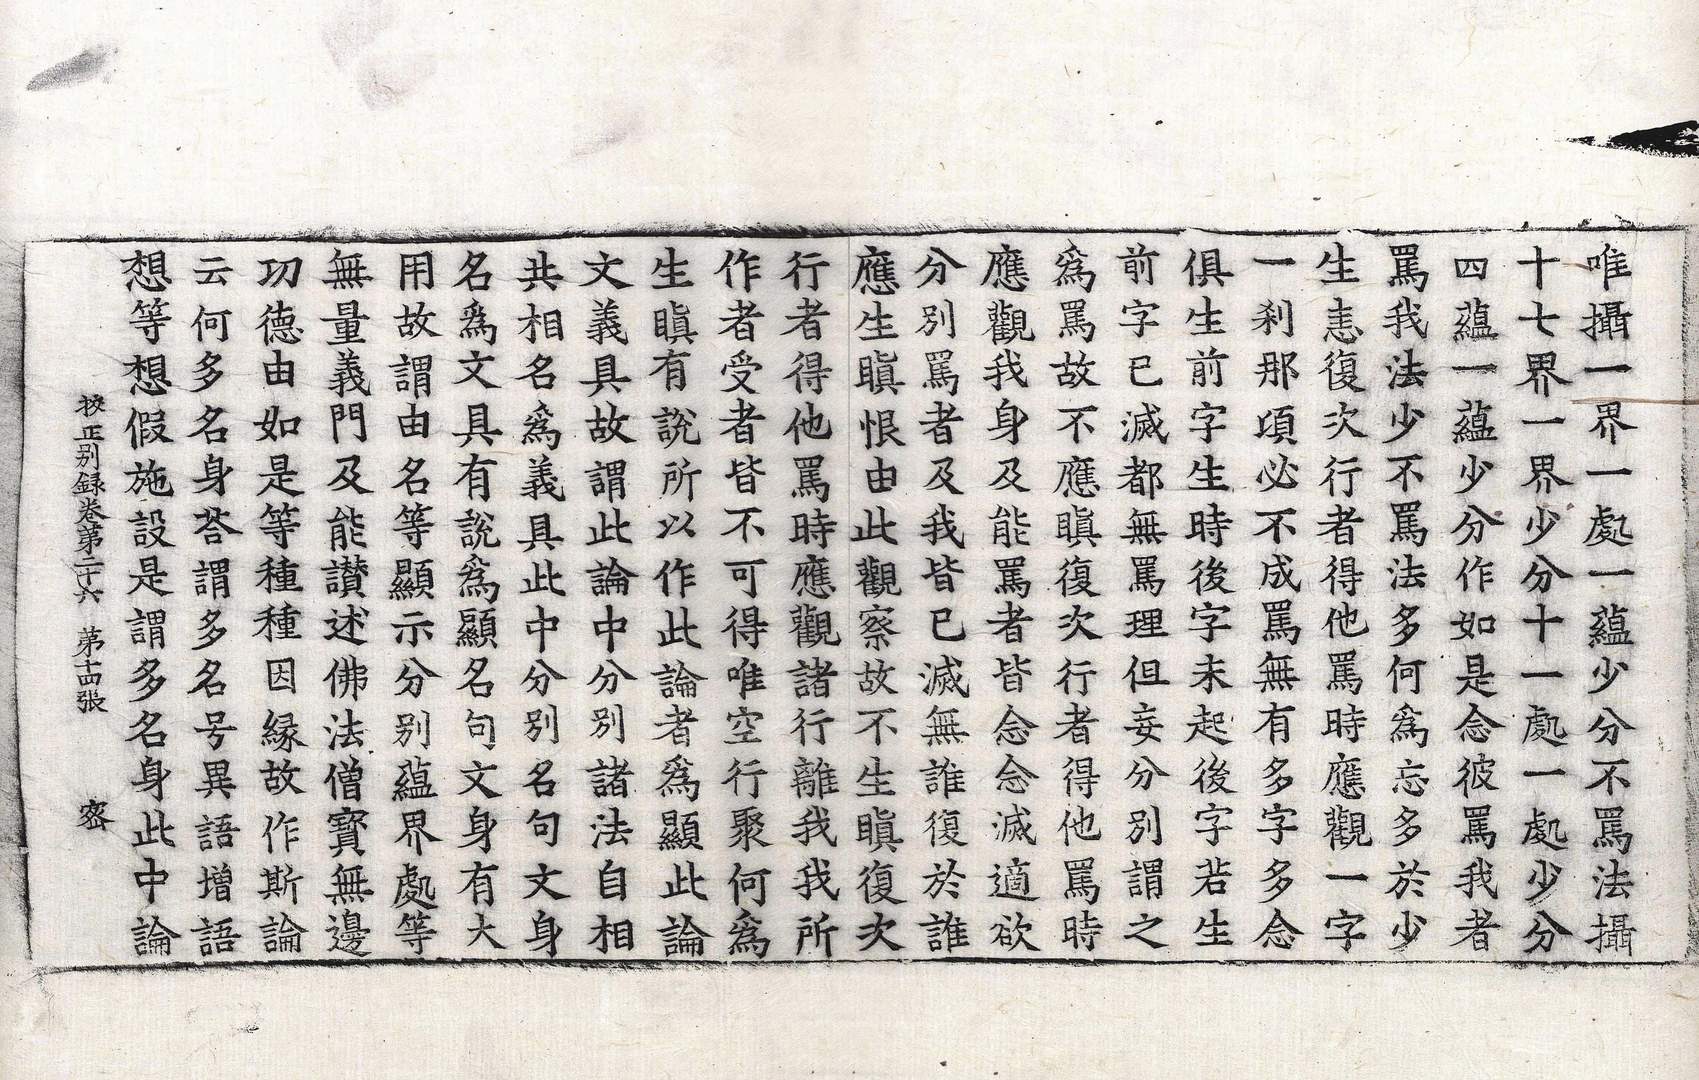 唯攝一界一處一蘊少分不罵法攝
十七界一界少分十一處一處少分
四蘊一蘊少分作如是念彼罵我者
罵我法少不罵法多何爲忘多於少
生恚復次行者得他罵時應觀一字
一刹那項必不成罵無有多字多念
俱生前字生時後字未起後字若生
前字已滅都無罵理但妄分別謂之
爲罵故不應瞋復次行者得他罵時
應觀我身及能罵者皆念念滅適欲
分別罵者及我皆已滅無誰復於誰
應生瞋恨由此觀察故不生瞋復次
行者得他罵時應觀諸行離我我所
作者受者皆不可得唯空行聚何爲
生瞋有說所以作此論者爲顯此論
文義具故謂此論中分別諸法自相
共相名爲義具此中分別名句文身
名爲文具有說爲顯名句文身有大
用故謂由名等顯示分別蘊界處等
無量義門及能讃述佛法僧寳無邊
功德由如是等種種因縁故作斯論
云何多名身荅謂多名号異語增語
想等想假施設是謂多名身此中論
挍正別録卷第二十六　第十四張　密